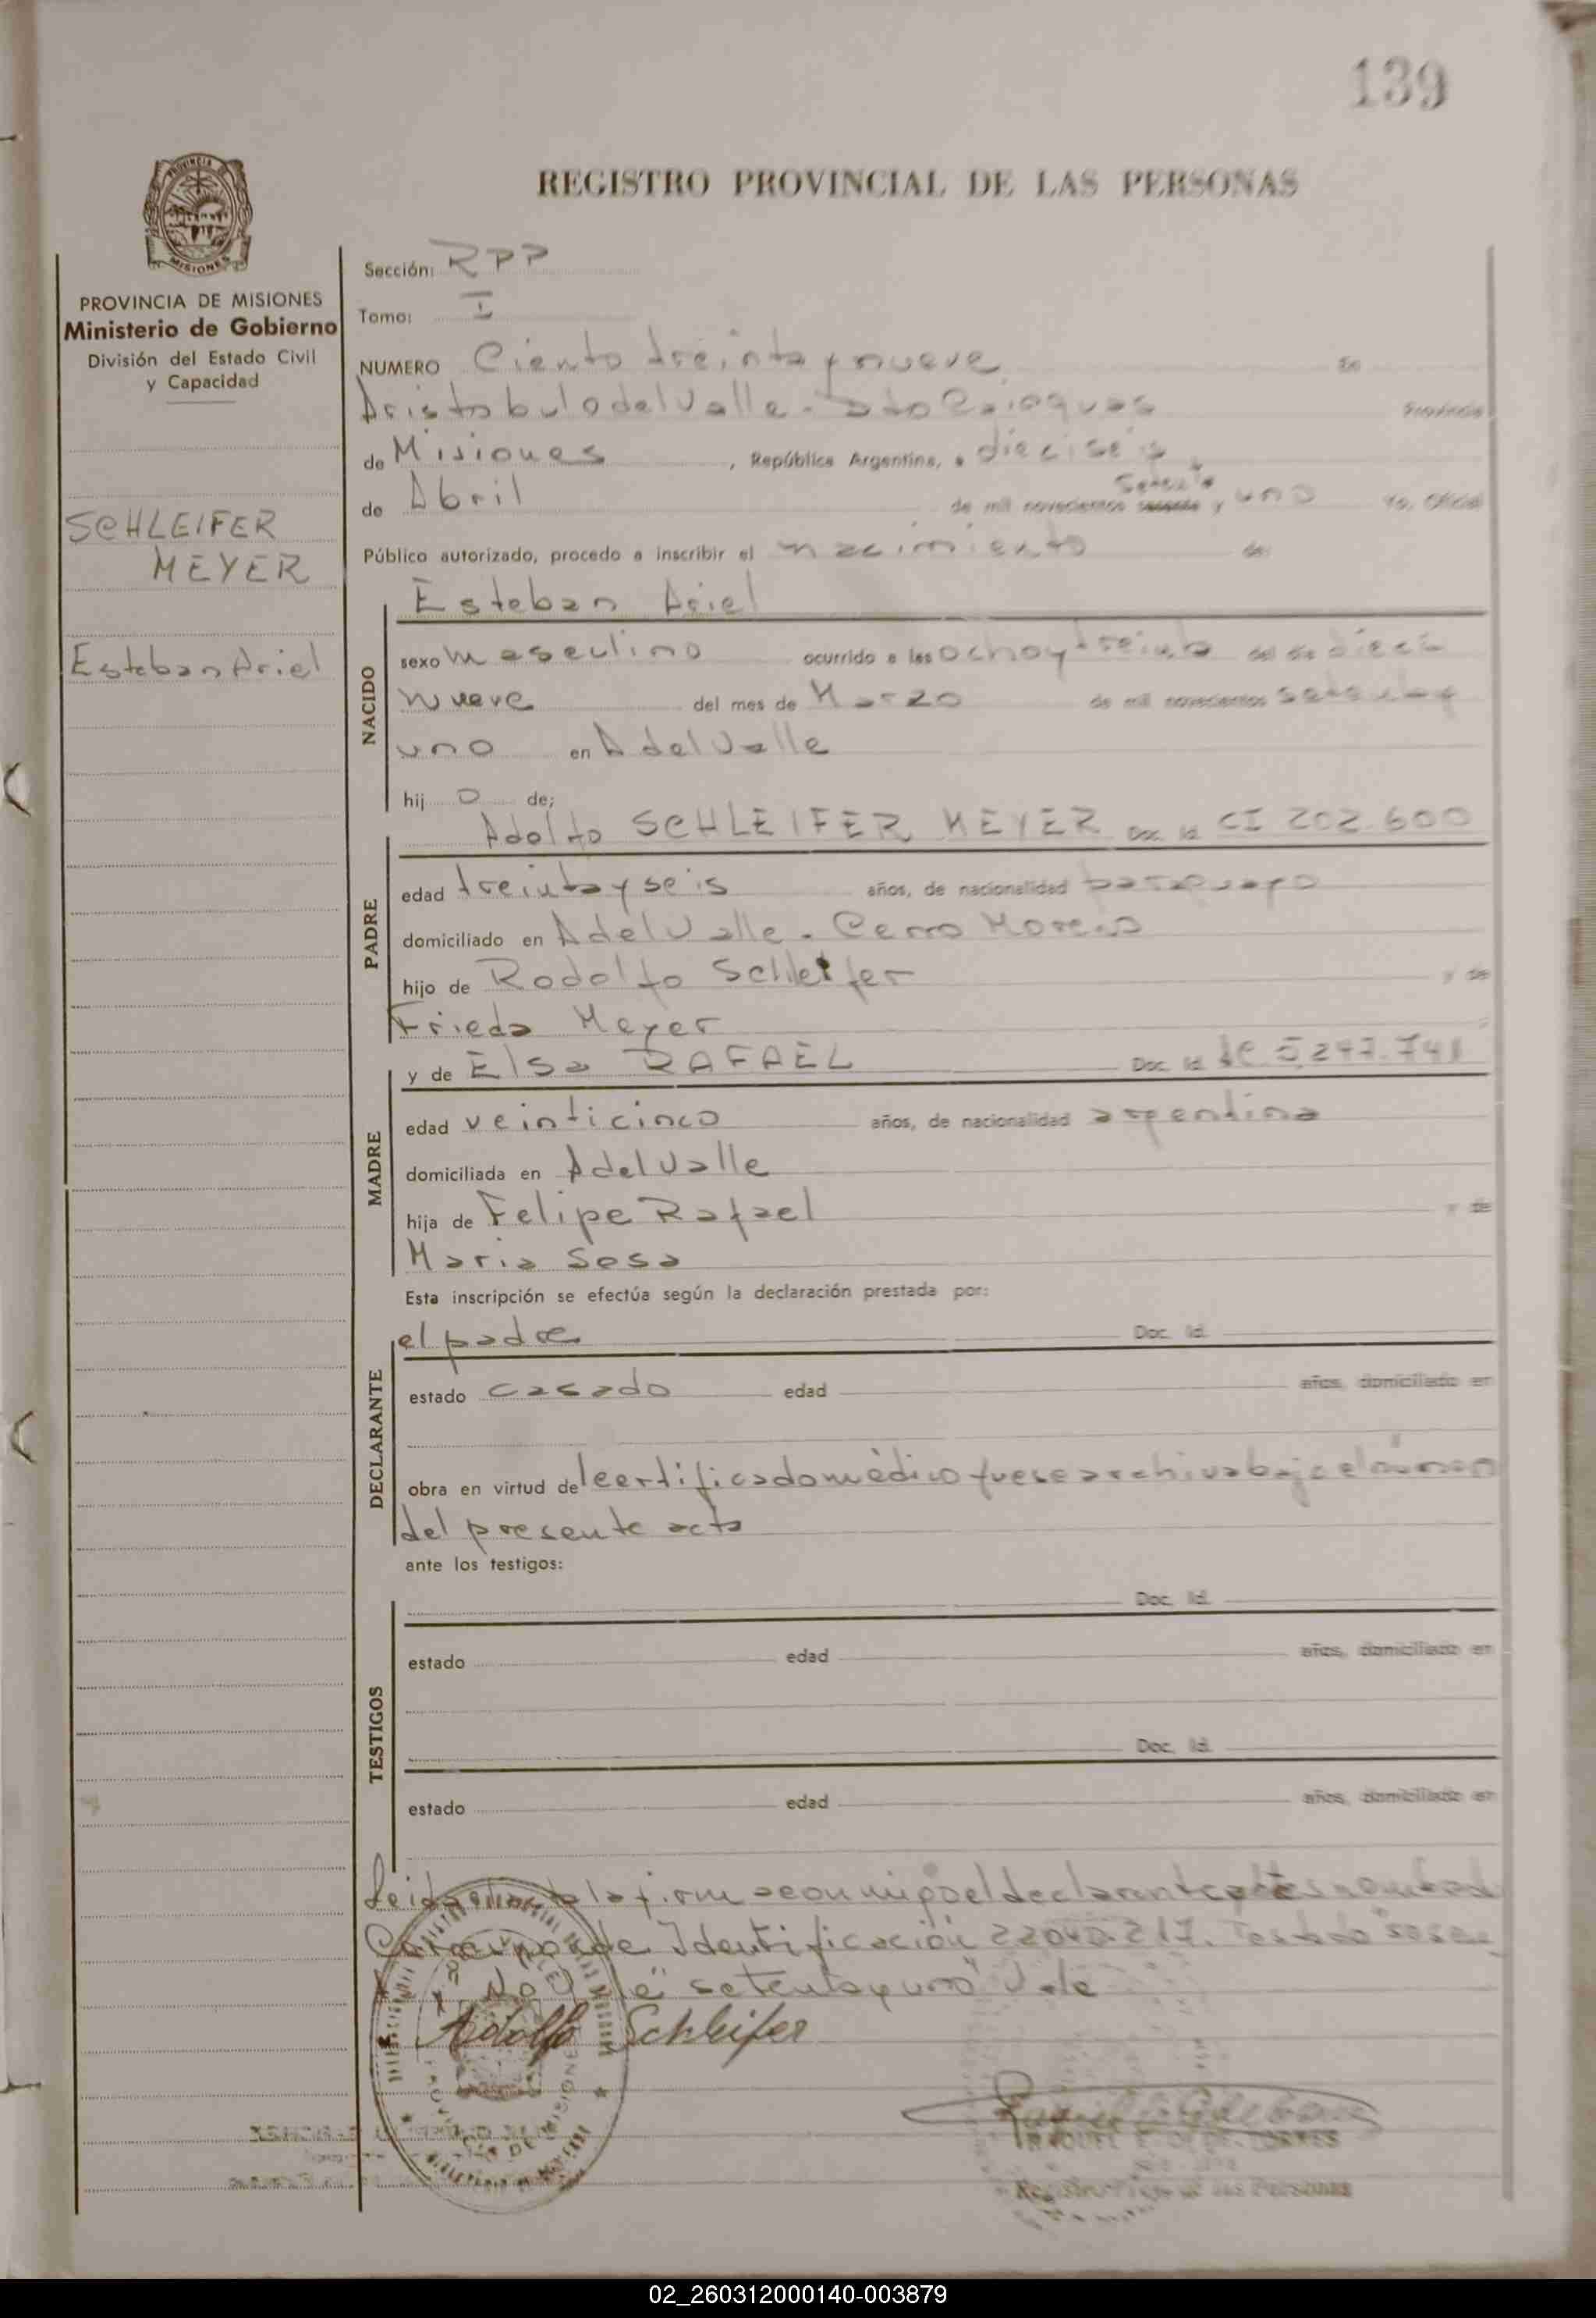 139
PROVINCIA DE
MISIONES
REGISTRO PROVINCIAL DE LAS PERSONAS
PROVINCIA DE MISIONES
Ministerio de Gobierno
División del Estado Civil
y Capacidad
SCHLEIFER
MEYER
Esteban Ariel
Sección: RPP
Tomo: I
NUMERO Ciento treinta y nueve En
Aristobulo del Valle - Dto Cainguas Provincia
de Misiones, República Argentina, a dieciseis
setenta
de Abril de mil novecientos sesenta y uno Yo, Oficial
Público autorizado, procedo a inscribir el nacimiento de:
Esteban Ariel
NACIDO
sexo masculino ocurrido a las ocho y treinta del día dieci
nueve del mes de Marzo de mil novecientos setenta y
uno en A del Valle
hij o de;
PADRE
Adolfo SCHLEIFER MEYER Doc. Id. CI 202.600
edad treinta y seis años, de nacionalidad paraguayo
domiciliado en A del Valle - Cerro Moreno
hijo de Rodolfo Schleifer y de
Frieda Meyer
MADRE
y de Elsa RAFAEL Doc. Id. LC 5.247.741
edad veinticinco años, de nacionalidad argentina
domiciliada en A del Valle
hija de Felipe Rafael y de
Maria Sosa
Esta inscripción se efectúa según la declaración prestada por:
DECLARANTE
el padre Doc. Id.
estado casado edad años, domiciliado en
obra en virtud del certificado médico que se archiva bajo el número
del presente acta
ante los testigos:
TESTIGOS
Doc. Id.
estado edad años, domiciliado en
Doc. Id.
estado edad años, domiciliado en
Leida el acta la firma conmigo el declarante
Corresponde Identificación 22040.217. Testado "sesen
ta" No Vale "setenta y uno" Vale
Adolfo Schleifer
PROVINCIA DE MISIONES
TORRES
Registro de las Personas
02_260312000140-003879